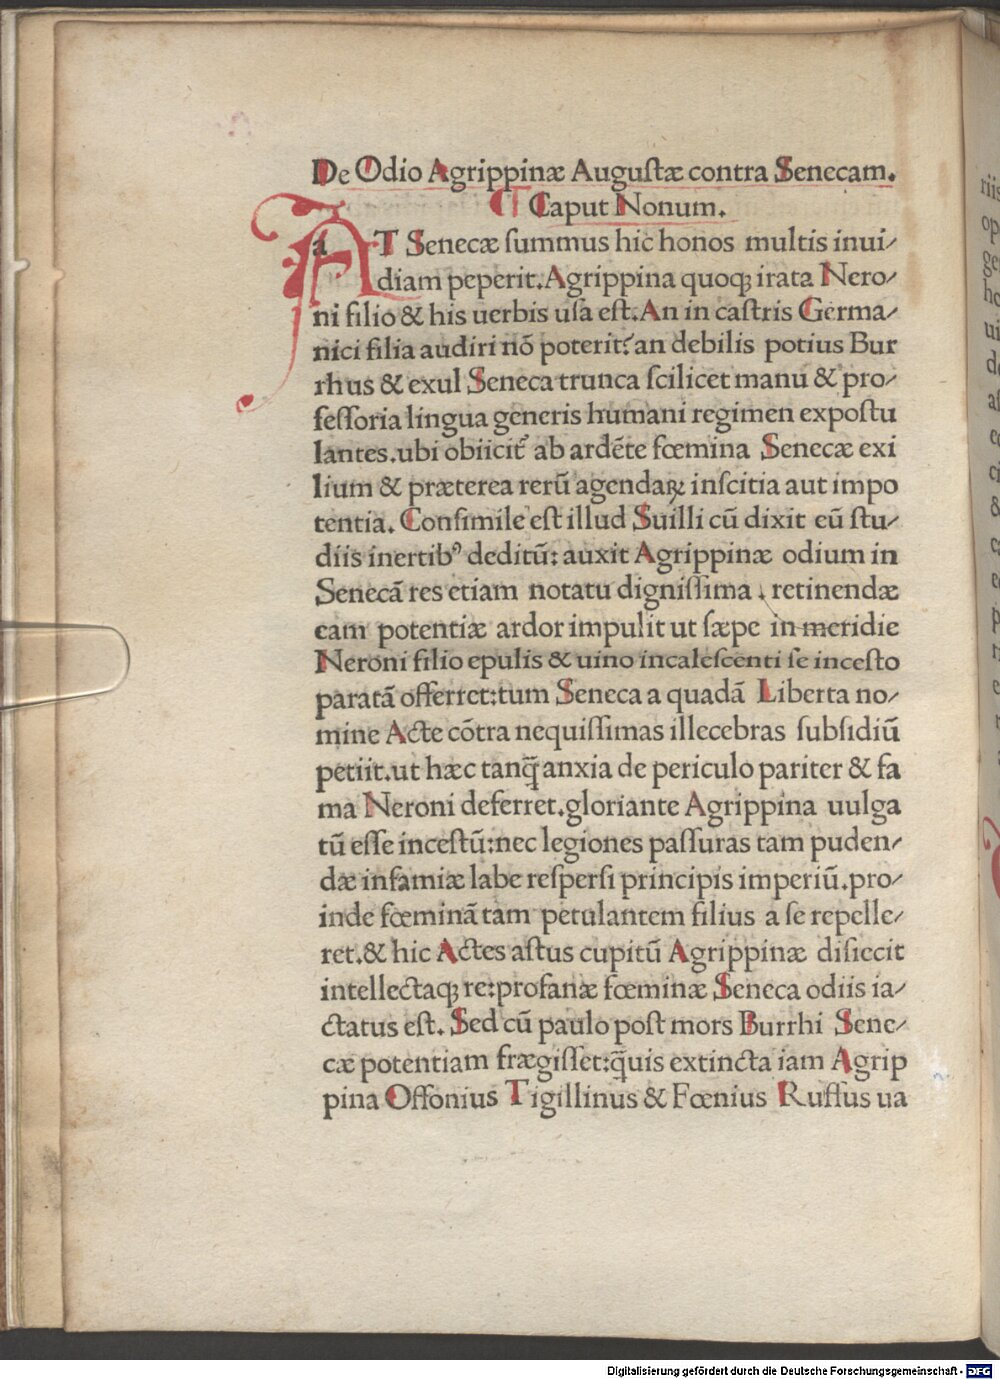 De Odio Agrippinæ Augustæ contra Senecam.
Caput Nonum.
aT Senecæ ſummus hic honos multis inui⸗
diam peperit. Agrippina quoqꝫ irata Nero⸗
ni filio & his uerbis uſa eſt. An in caſtris Germa⸗
nici filia audiri nō poterit? an debilis potius Bur
rhus & exul Seneca trunca ſcilicet manu & pro⸗
feſſoria lingua generis humani regimen expoſtu
lantes. ubi obiicit᷑ ab ardēte fœmina Senecæ exi
lium & præterea rerū agendaꝝ inſcitia aut impo
tentia. Conſimile eſt illud Suilli cū dixit eū ſtu⸗
diis inertibꝰ deditū: auxit Agrippinæ odium in
Senecā res etiam notatu digniſſima. retinendæ
eam potentiæ ardor impulit ut ſæpe in meridie
Neroni filio epulis & uino incaleſcenti ſe inceſto
paratā offerret: tum Seneca a quadā Liberta no⸗
mine Acte cōtra nequiſſimas illecebras ſubſidiū
petiit. ut hæc tanq̄ anxia de periculo pariter & fa
ma Neroni deferret. gloriante Agrippina uulga
tū eſſe inceſtū: nec legiones paſſuras tam puden⸗
dæ infamiæ labe reſperſi principis imperiū. pro⸗
inde fœminā tam petulantem filius a ſe repelle⸗
ret. & hic Actes aſtus cupitū Agrippinæ diſiecit
intellectaqꝫ re: profanæ fœminæ Seneca odiis ia⸗
ctatus eſt. Sed cū paulo poſt mors Burrhi Sene⸗
cæ potentiam frægiſſet: q̄uis extincta iam Agrip
pina Offonius Tigillinus & Fœnius Ruffus ua
Digitalisierung gefördert durch die Deutsche Forschungsgemeinschaft - DFG